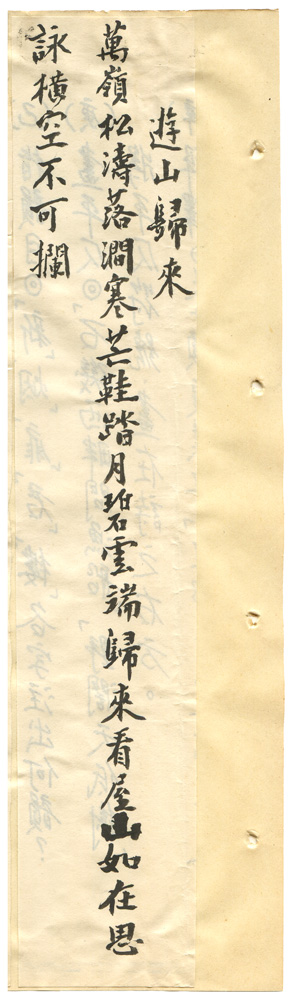 遊山歸來
萬嶺松濤落澗寒芒鞋踏月碧雲端歸來看屋山如在思
詠橫空不可攔